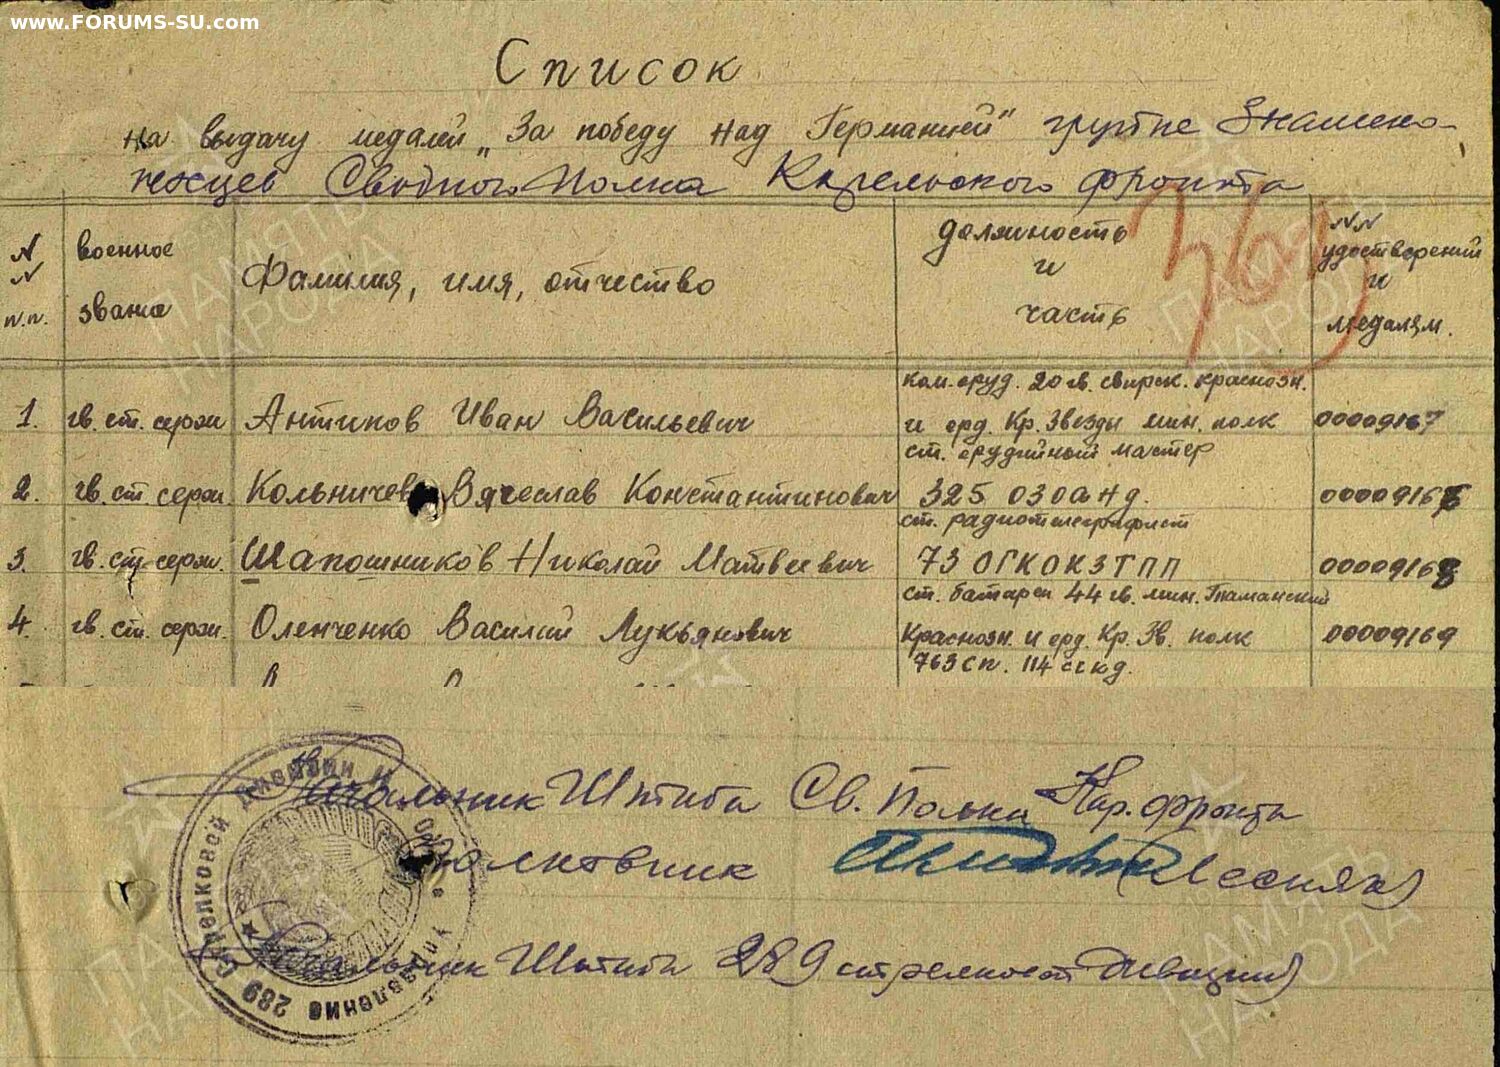 www.FORUMS-SU.com
Список
на выдачу медалей „За победу над Германией" группе Знамено-
носцев Сводного Полка Карельского фронта
N N п.п.
военное звание
Фамилия, имя, отчество
должность и часть
NN удостверений и медалям.
363
1. гв. ст. серж Антипов Иван Васильевич ком. оруд. 20 гв. свирск. краснозн. и орд. Кр. Звезды мин. полк 00009167
2. гв. ст серж. Кольничев Вячеслав Константинович ст. орудийный мастер 325 ОЗОАНД. 0000916
3. гв. ст. серж. Шапошников Николай Матвеевич ст. радиотелеграфист 73 ОГКОКЗТПП 00009168
4. гв. ст. серж. Оленченко Василий Лукьянович ст. батареи 44 гв. мин. Таманский Краснозн. и орд. Кр. Зв. полк 00009169
763 сп. 114 сд.
Начальник Штаба Св. Полка Кар. фронта
Полковник (Лесняк)
Начальник Штаба 289 стрелковой дивизии
Управление 289 Стрелковой Дивизии
ПАМЯТЬ НАРОДА